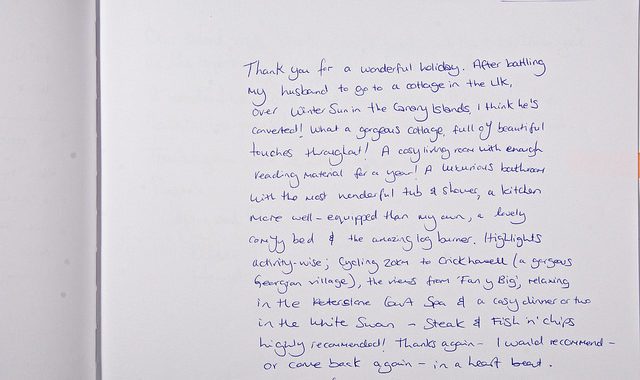 Thank you for a wonderful holiday. After battling
my husband to go to a cottage in the UK,
over Winter Sun in the Canary Islands, I think he's
converted! What a gorgeous cottage, full of beautiful
touches throughout! A cosy living room with enough
reading material for a year! A luxurious bathroom
with the most wonderful tub & shower, a kitchen
more well-equipped than my own, a lovely
comfy bed & the amazing log burner. Highlights
activity-wise; Cycling 20km to Crickhowell (a gorgeous
Georgian village), the views from 'Fan y Big', relaxing
in the Court Spa & a cosy dinner or two
in the White Swan - Steak & Fish 'n' chips
highly recommended! Thanks again - I would recommend -
or come back again - in a heart beat.